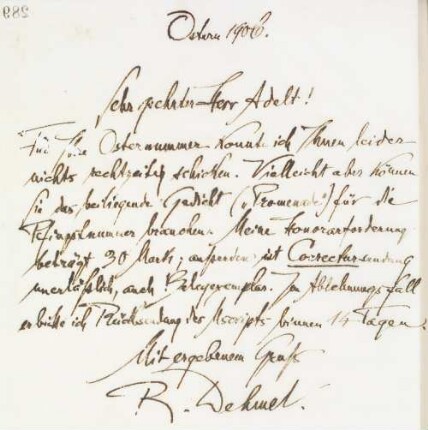 289
Ostern 1906.
Sehr geehrter Herr Adelt!
Für Ihre Osternummer konnte ich Ihnen leider
nichts rechtzeitig schicken. Vielleicht aber können
Sie das beiliegende Gedicht („Promenade") für die
Pfingstnummer brauchen. Meine Honorarforderung
beträgt 30 Mark; außerdem ist Correctursendung
unerläßlich, auch Belegexemplar. Im Ablehnungsfall
erbitte ich Rücksendung des Mscripts binnen 14 Tagen.
Mit ergebenem Gruß
R. Dehmel.